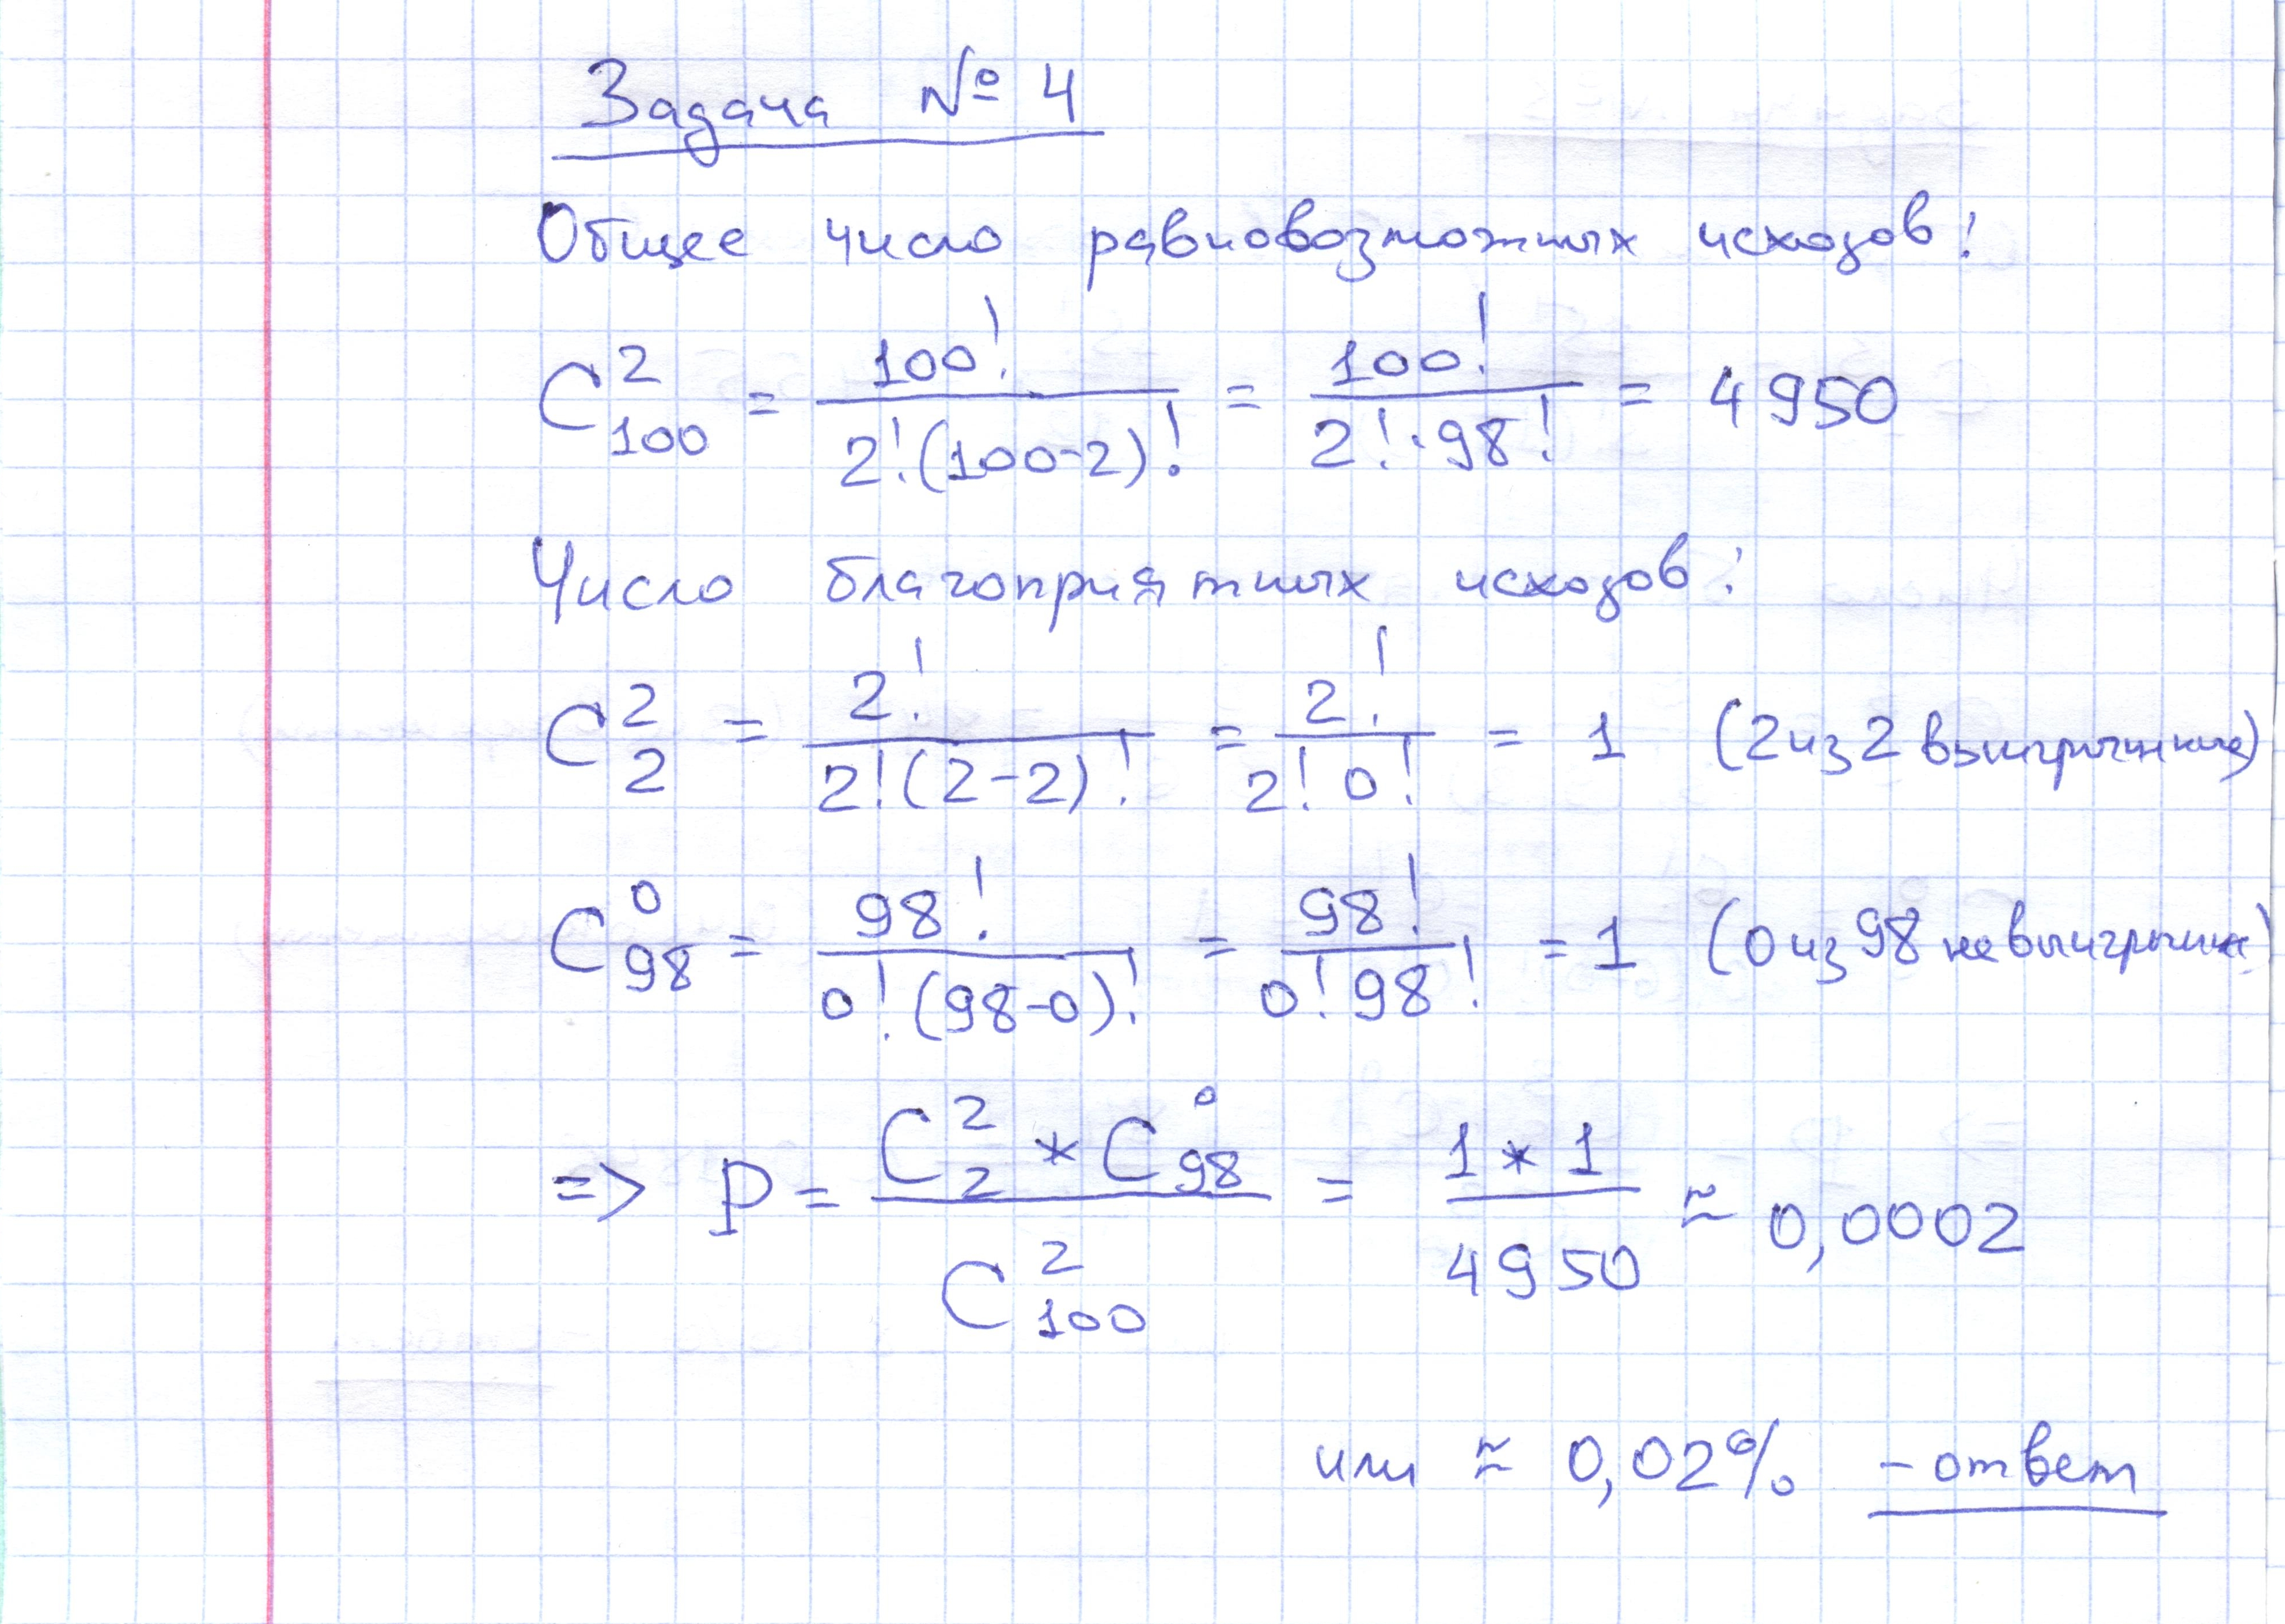 Задача № 4
Общее число равновозможных исходов:
C²₁₀₀ = 100! / 2!(100-2)! = 100! / 2!·98! = 4950
Число благоприятных исходов:
C²₂ = 2! / 2!(2-2)! = 2! / 2! 0! = 1 (2 из 2 выигрышных)
C⁰₉₈ = 98! / 0!(98-0)! = 98! / 0! 98! = 1 (0 из 98 невыигрышн.)
=> P = C²₂ * C⁰₉₈ / C²₁₀₀ = 1 * 1 / 4950 ≈ 0,0002
или ≈ 0,02% - ответ